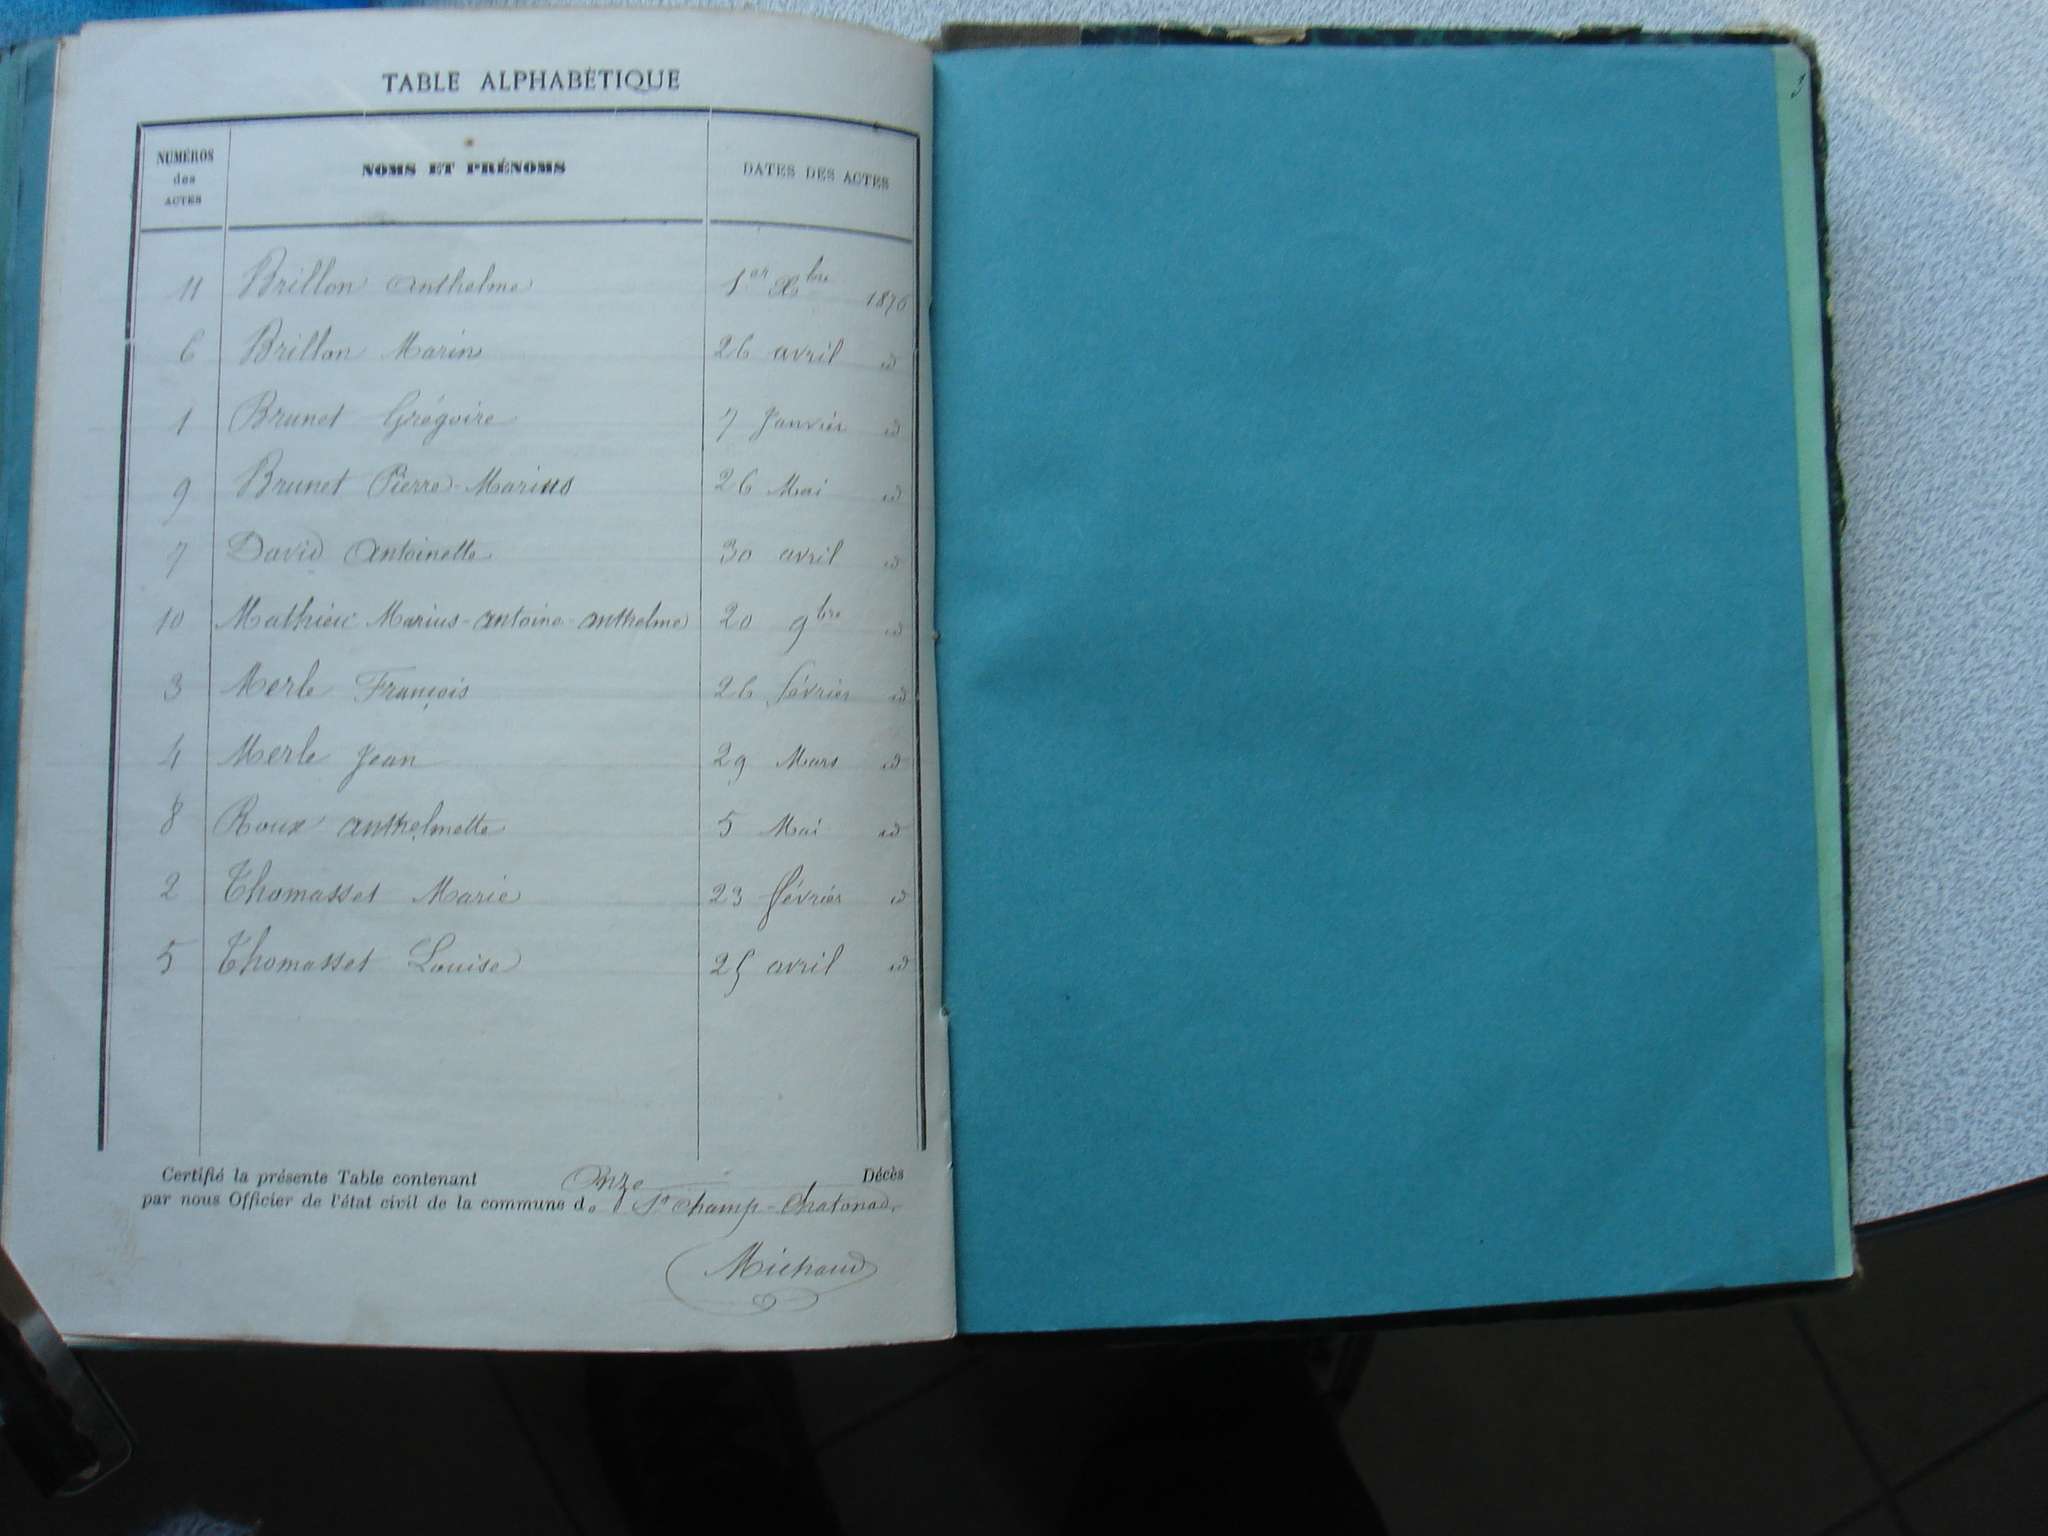 TABLE ALPHABÉTIQUE
NUMÉROS des ACTES NOMS ET PRÉNOMS DATES DES ACTES
11 Brillon anthelme 1er Xbre 1876
6 Brillon Marin 26 avril id
1 Brunet Grégoire 7 Janvier id
9 Brunet Pierre-Marius 26 Mai id
7 David Antoinette 30 avril id
10 Mathieu Marius-antoine-anthelme 20 9bre id
3 Merle François 26 février id
4 Merle Jean 29 Mars id
8 Roux anthelmette 5 Mai id
2 Thomasset Marie 23 février id
5 Thomasset Louise 25 avril id
Certifié la présente Table contenant Onze Décès
par nous Officier de l'état civil de la commune de St Champ-Chatonod
Michaud